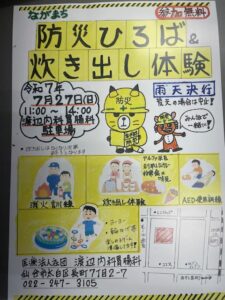 ながまち
参加無料
防災ひろば&
炊き出し体験
令和7年
7月27日(日)
11:00~14:00
渡辺内科胃腸科
駐車場
防災
雨天決行
荒天の場合は中止!
みんなで
一緒に!
消火訓練
炊き出し体験
AED使用訓練
医療法人社団 渡辺内科胃腸科
仙台市太白区長町7丁目2-7
022-247-3105